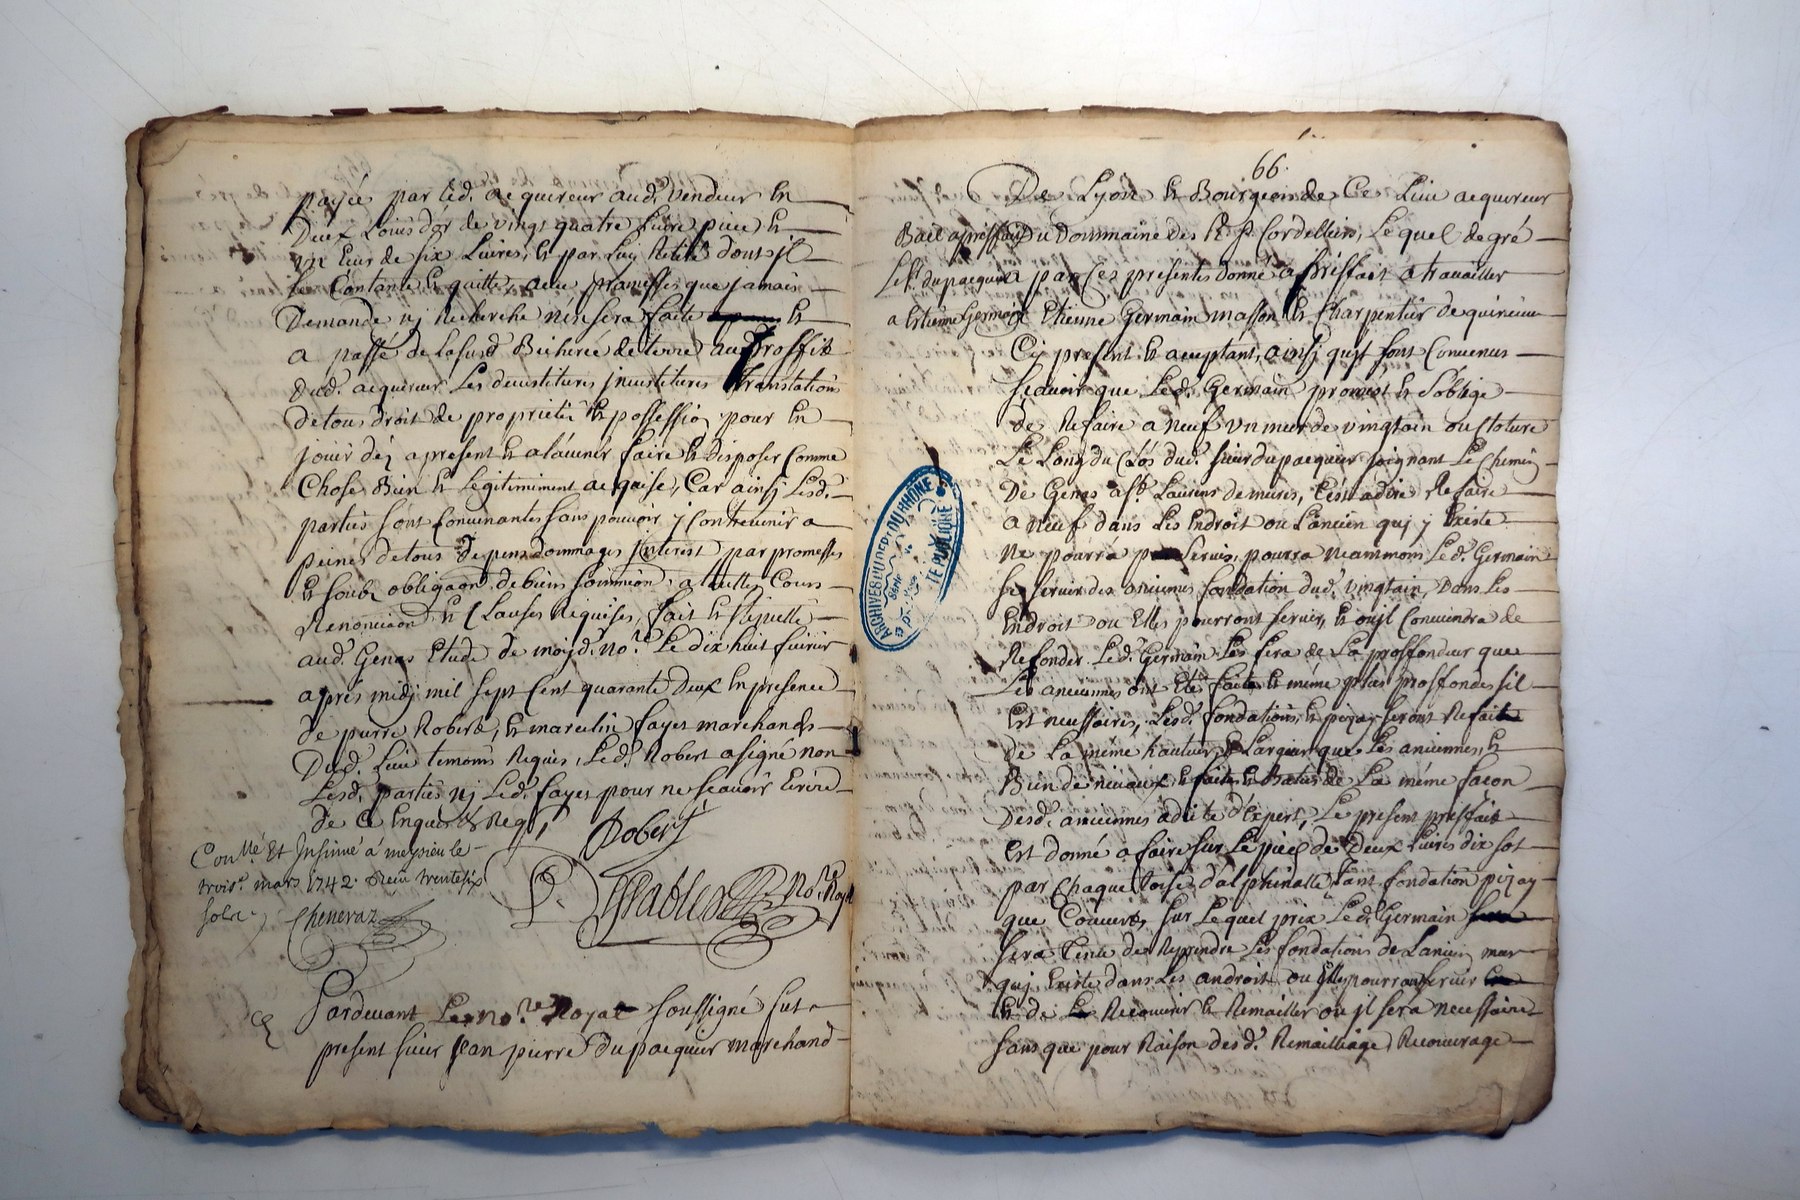 payée par led. acquereur aud. vendeur en
Deux Louis d'or de vingt quatre livre piece et
un Ecus de six Livres, et par Luy Retiré dont jl
se Contante et quitte, avec promesses que jamais
Demande nj Recherche n'en sera faite et
a passé de lasusd. Bicherée de terre au proffit
dud. acquereur Les devestitures jnvestitures translations
de tous droit de proprieté et possession pour en
jouir déz apresent et a lávenir faire et disposer Comme
Chose Bien et Legitimement acquise, Car ainsj Lesd.
parties sont Convenantes sans pouvoir y Contrevenir a
peines de tous depens dommages jnterest par promesses
et soubz obligaon de biens soumission a touttes Cours
Renonciaon et Clauses Requises, fait et
aud. Genas Etude de moyd. nore. Le dix huit fuirier
apres midj mil sept Cent quarante deux en presence
de pierre Robert, et marcelin fayes marchands
Dud. Lieu temoins Requis, Led. Robert a signé non
Lesd. parties nj Led. fayes pour ne scavoir Ecrire
de Ce Enquis et Reqs
Robert
Conllé Et Insinué á meysieu le
troise. mars 1742. Recu trente six
sols
Cheneraz
nore. Royal
Pardevant Le nore Royal soussigné fut
present sieur jean pierre Dupacquier marchand
66.
De Lyon et Bourgeois de Ce Lieu acquereur
Du Dommaine des R. P. Cordelliers, Le quel de gré
a par Ces presentes donné a prisfait a travailler
a Etienne Germain masson et Charpentier de
Cy present et acceptant, ainsj qu'jl sont Convenus
scavoir que Led. Germain promet et s'oblige
de Refaire a neuf un mur de vingtain ou Cloture
Le Long du Clós dud. sieur dupacquier joignant Le Chemin
De Genas a St. Laurens de mures, C'est a dire Refaire
a neuf dans Les Endroit ou L'ancien quj y Existe
ne pourra servir, pourra neammoins Led. Germain
se servir des anciennes fondation dud. vingtain Dans Les
Endroit ou Elles pourront servir, et ou jl Conviendra de
Refonder Led. Germain Les fera de La proffondeur que
Les anciennes ont Etés faite et même plus proffondes sil
Est necessaires, Lesd. fondations et pizay seront Refaite
de La même hauteur et Largeur que Les anciennes, et
Bien de niveaux et faite et Batus de La même facon
Desd. anciennes a dite d'Expert, Le present prisfait
Est donné a faire sur Le pied de Deux Livres dix sol
par Chaque toise d'alphinalle tant fondation pizay
que Couvert, sur Lequel prix Led. Germain
sera tenu de Reprendre Les fondations de Lancien mur
quj Existe dans Les androit ou Elles pourront servir
et de Recouvrir et Remailler ou jl sera necessaire
sans que pour Raison desd. Remaillage, Recouvrage
Bail a prisfait
Sr. dupacquier
a Estienne Germain
ARCHIVES DU DEPT DU RHÔNE